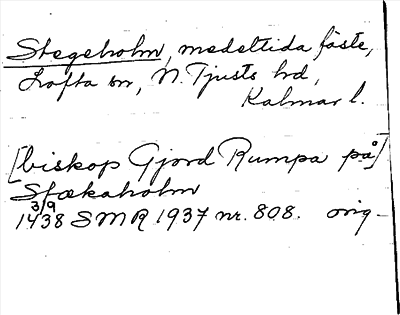 Stegeholm, medeltida fäste,
Lofta sn, N. Tjusts hd,
Kalmar l.
[biskop Gjord Rumpa på]
Stækaholm
3/9
1438 SMR 1937 nr. 808. orig-